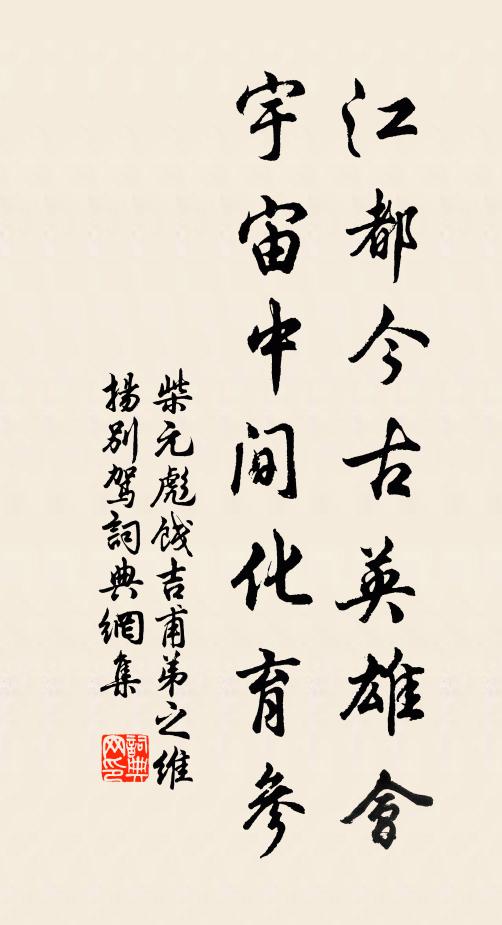 江都今古英雄會
宇宙中間化育參
柴元彪餞吉甫弟之維
揚別駕詞典網集
詞典
网印